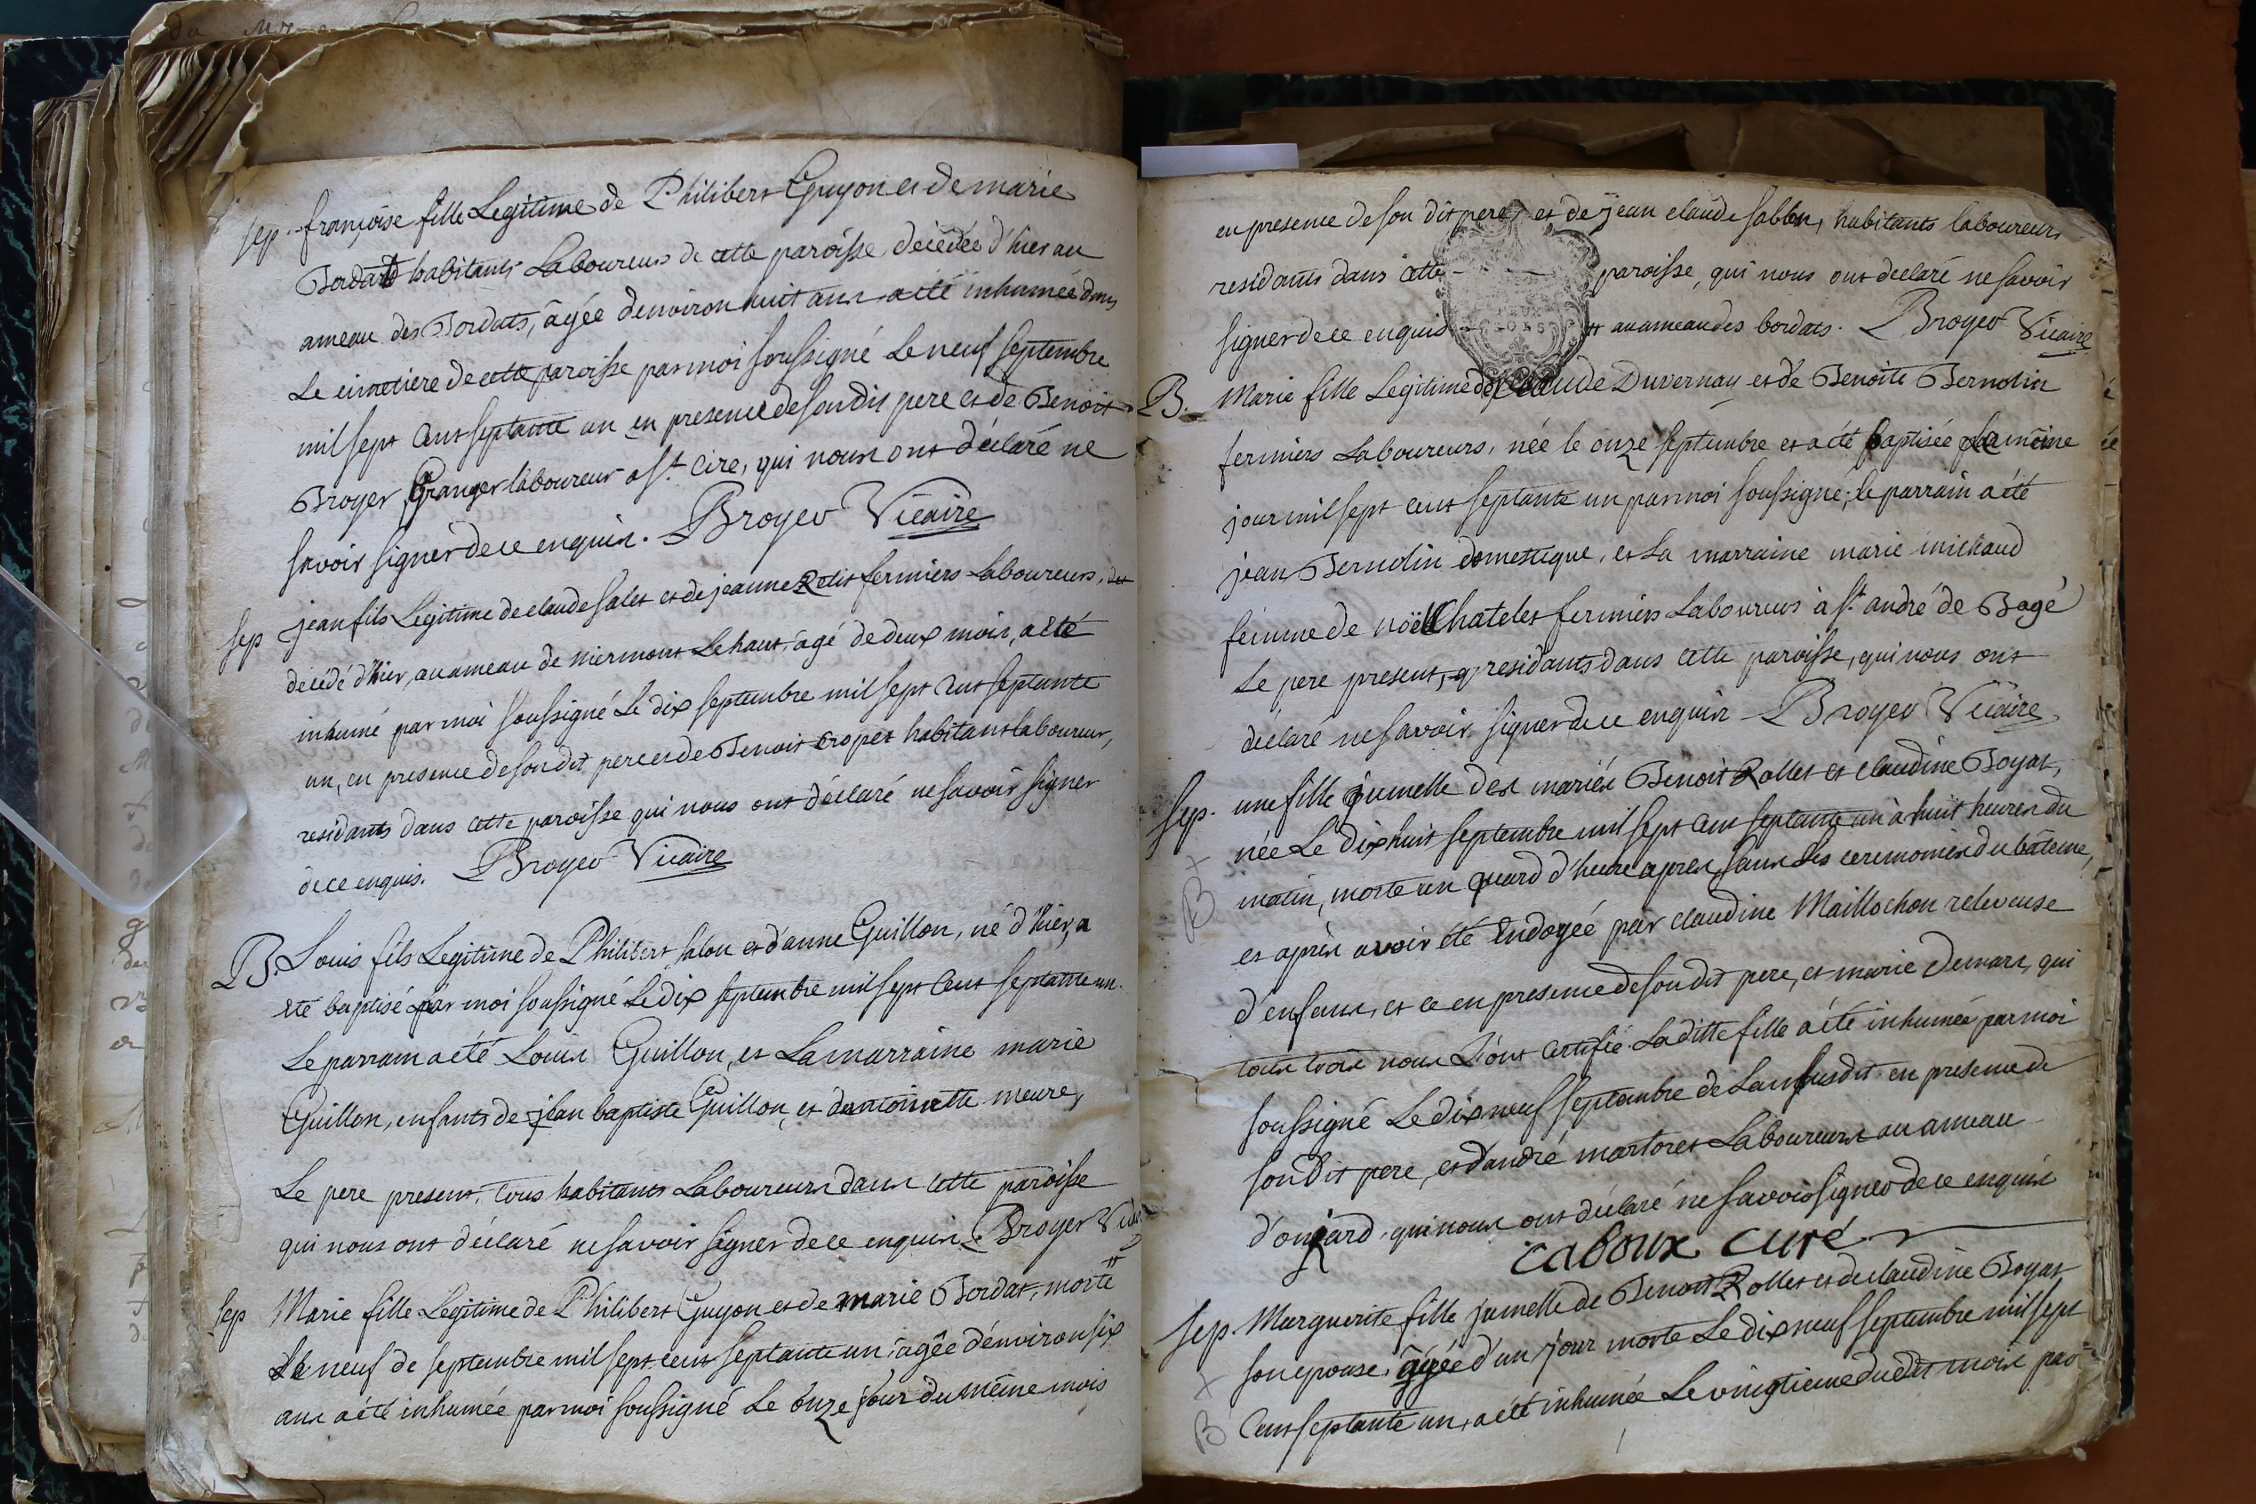 sep. françoise fille Legitime de Philibert Guyon et de marie
Bordat habitants Laboureurs de cette paroisse, décédée d'hier au
ameau des Bordats, âgée denviron huit ans a été inhumée dans
Le cimetiere de cette paroisse par moi soussigné Le neuf septembre
mil sept Cent septante un en presence de son dit pere et de Benoit
Broyer Granger laboureur a St. Cire, qui nous ont déclaré ne
savoir signer de ce enquis. Broyer Vicaire
sep jean fils Legitime de claude sales et de jeanne Petit fermiers Laboureurs,
décédé d'hier, au ameau de niermont Le haut, agé de deux mois, a été
inhumé par moi soussigné Le dix septembre mil sept Cent septante
un, en presence de son dit pere et de Benoit cropet habitant laboureur,
residants dans cette paroisse qui nous ont déclaré ne savoir signer
de ce enquis. Broyer Vicaire
B. Louis fils Legitime de Philibert salou et d'anne Guillon, né d'hier, a
été baptisé par moi soussigné Le dix septembre mil sept Cent septante un.
Le parrain a été Louis Guillon, et La marraine marie
Guillon, enfants de jean baptiste Guillon, et d'antoinette meure,
Le pere present, tous habitants Laboureurs dans cette paroisse
qui nous ont déclaré ne savoir signer de ce enquis Broyer
sep Marie fille Legitime de Philibert Guyon et de marie Bordat, morte
Le neuf de septembre mil sept cent septante un, âgée d'environ six
ans a été inhumée par moi soussigné Le onze jour du même mois
en presence de son dit pere, et de jean claude sabbon, habitants laboureurs
residants dans cette paroisse, qui nous ont declaré ne savoir
signer de ce enquis au ameau des bordats. Broyer Vicaire
B. Marie fille Legitime de Claude Duvernay et de Benoite Bernolin
fermiers Laboureurs, née le onze septembre et a été baptisée le même
jour mil sept cent septante un par moi soussigné; le parrain a été
jean Bernolin domestique, et La marraine marie michaud
femme de noël Chatelet fermiers Laboureurs à St. andré de Bagé
Le pere present, residants dans cette paroisse, qui nous ont
déclaré ne savoir signer de ce enquis Broyer Vicaire
sep. une fille jumelle des mariés Benoit Rollet et claudine Boyat,
née Le dix huit septembre mil sept cent septante un à huit heures du
matin, morte un quard d'heure apres, sans les ceremonies du bâteme,
et après avoir été Endoyée par claudine Maillochon releveuse
d'enfans, et ce en presence de son dit pere, et marie Demars, qui
tous trois nous L'ont Certifié. La ditte fille a été inhumée par moi
soussigné Le dix neuf septembre de L'an susdit en presence de
son Dit pere, et d'andré martoret Laboureurs au ameau
d'onjard, qui nous ont déclaré ne savoir signer de ce enquis
caboux curé
sep. Marguerite fille jumelle de Benoit Rollet et de claudine Boyat
son epouse, âgée d'un jour morte Le dix neuf septembre mil sept
Cent septante un, a été inhumée Le vingtieme du dit mois par